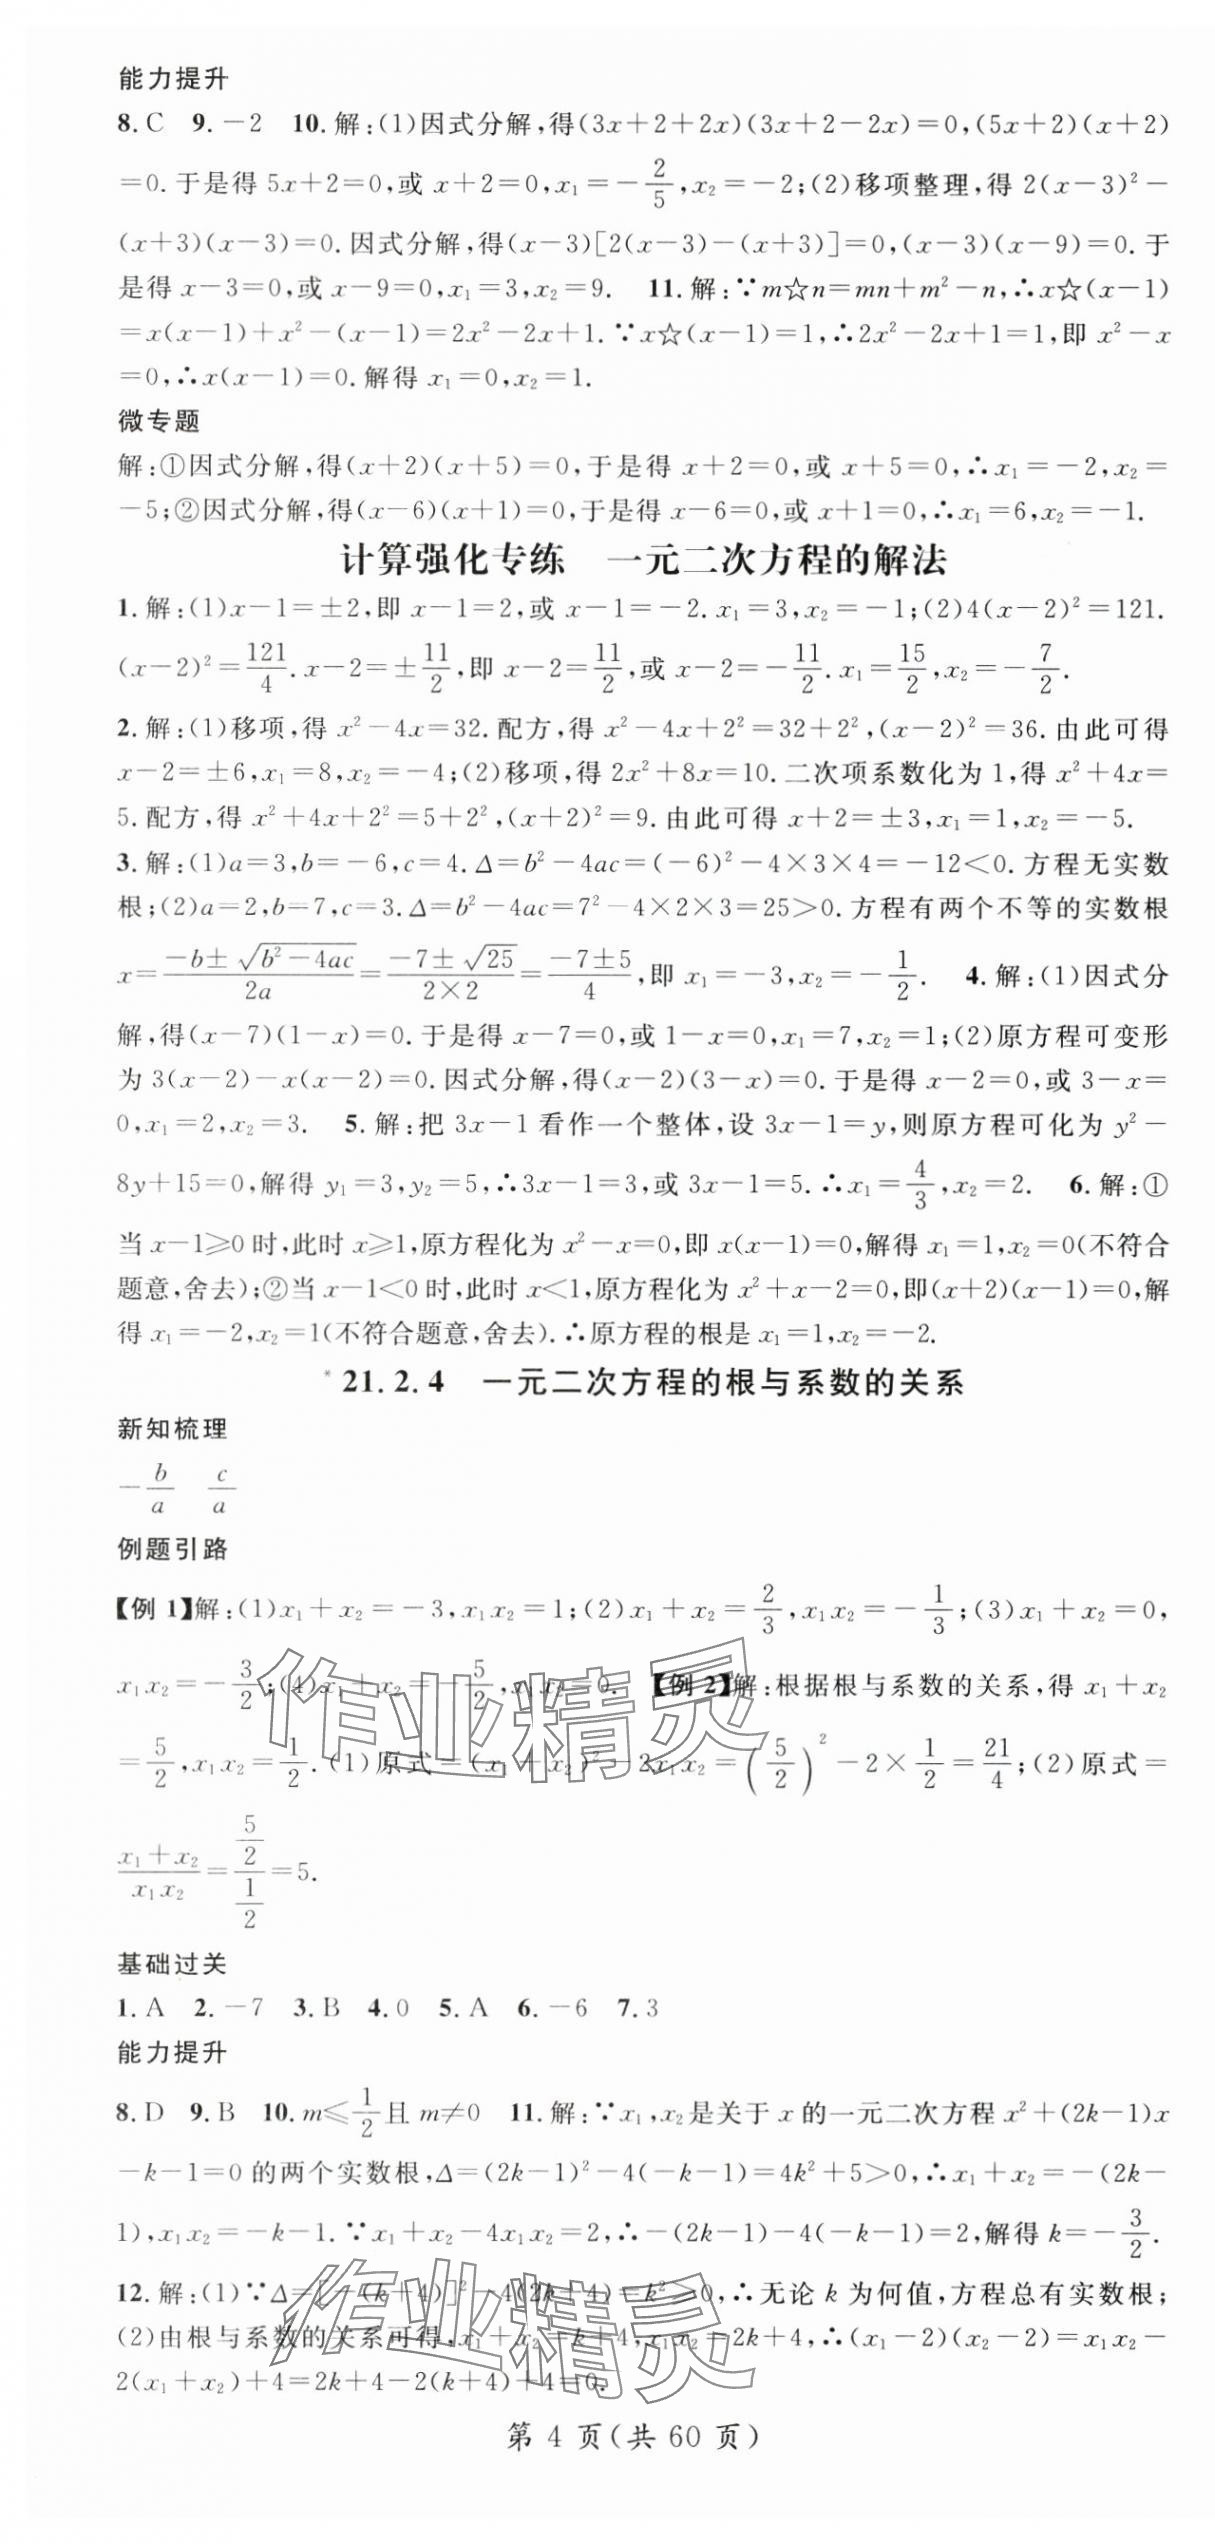 能力提升
8.C 9.-2 10.解:(1)因式分解,得(3x+2+2x)(3x+2-2x)=0,(5x+2)(x+2)
=0.于是得 5x+2=0,或 x+2=0,x₁=-2/5,x₂=-2;(2)移项整理,得 2(x-3)²-
(x+3)(x-3)=0.因式分解,得(x-3)[2(x-3)-(x+3)]=0,(x-3)(x-9)=0.于
是得 x-3=0,或 x-9=0,x₁=3,x₂=9. 11.解:∵m☆n=mn+m²-n,∴x☆(x-1)
=x(x-1)+x²-(x-1)=2x²-2x+1.∵x☆(x-1)=1,∴2x²-2x+1=1,即 x²-x
=0,∴x(x-1)=0.解得 x₁=0,x₂=1.
微专题
解:①因式分解,得(x+2)(x+5)=0,于是得 x+2=0,或 x+5=0,∴x₁=-2,x₂=
-5;②因式分解,得(x-6)(x+1)=0,于是得 x-6=0,或 x+1=0,∴x₁=6,x₂=-1.
计算强化专练 一元二次方程的解法
1.解:(1)x-1=±2,即 x-1=2,或 x-1=-2.x₁=3,x₂=-1;(2)4(x-2)²=121.
(x-2)²=121/4.x-2=±11/2,即 x-2=11/2,或 x-2=-11/2.x₁=15/2,x₂=-7/2.
2.解:(1)移项,得 x²-4x=32.配方,得 x²-4x+2²=32+2²,(x-2)²=36.由此可得
x-2=±6,x₁=8,x₂=-4;(2)移项,得 2x²+8x=10.二次项系数化为 1,得 x²+4x=
5.配方,得 x²+4x+2²=5+2²,(x+2)²=9.由此可得 x+2=±3,x₁=1,x₂=-5.
3.解:(1)a=3,b=-6,c=4.Δ=b²-4ac=(-6)²-4×3×4=-12<0.方程无实数
根;(2)a=2,b=7,c=3.Δ=b²-4ac=7²-4×2×3=25>0.方程有两个不等的实数根
x=(-b±√(b²-4ac))/2a=(-7±√25)/(2×2)=(-7±5)/4,即 x₁=-3,x₂=-1/2. 4.解:(1)因式分
解,得(x-7)(1-x)=0.于是得 x-7=0,或 1-x=0,x₁=7,x₂=1;(2)原方程可变形
为 3(x-2)-x(x-2)=0.因式分解,得(x-2)(3-x)=0.于是得 x-2=0,或 3-x=
0,x₁=2,x₂=3. 5.解:把 3x-1 看作一个整体,设 3x-1=y,则原方程可化为 y²-
8y+15=0,解得 y₁=3,y₂=5,∴3x-1=3,或 3x-1=5.∴x₁=4/3,x₂=2. 6.解:①
当 x-1≥0 时,此时 x≥1,原方程化为 x²-x=0,即 x(x-1)=0,解得 x₁=1,x₂=0(不符合
题意,舍去);②当 x-1<0 时,此时 x<1,原方程化为 x²+x-2=0,即(x+2)(x-1)=0,解
得 x₁=-2,x₂=1(不符合题意,舍去).∴原方程的根是 x₁=1,x₂=-2.
*21.2.4 一元二次方程的根与系数的关系
新知梳理
-b/a c/a
例题引路
【例 1】解:(1)x₁+x₂=-3,x₁x₂=1;(2)x₁+x₂=2/3,x₁x₂=-1/3;(3)x₁+x₂=0,
x₁x₂=-3/2;(4)x₁+x₂=-5/2,x₁x₂=0. 【例 2】解:根据根与系数的关系,得 x₁+x₂
=5/2,x₁x₂=1/2.(1)原式=(x₁+x₂)²-2x₁x₂=(5/2)²-2×1/2=21/4;(2)原式=
(x₁+x₂)/(x₁x₂)=(5/2)/(1/2)=5.
基础过关
1.A 2.-7 3.B 4.0 5.A 6.-6 7.3
能力提升
8.D 9.B 10.m≤1/2且 m≠0 11.解:∵x₁,x₂是关于 x 的一元二次方程 x²+(2k-1)x
-k-1=0 的两个实数根,Δ=(2k-1)²-4(-k-1)=4k²+5>0,∴x₁+x₂=-(2k-
1),x₁x₂=-k-1.∵x₁+x₂-4x₁x₂=2,∴-(2k-1)-4(-k-1)=2,解得 k=-3/2.
12.解:(1)∵Δ=[-(k+4)]²-4(2k+4)=k²≥0,∴无论 k 为何值,方程总有实数根;
(2)由根与系数的关系可得,x₁+x₂=k+4,x₁x₂=2k+4,∴(x₁-2)(x₂-2)=x₁x₂-
2(x₁+x₂)+4=2k+4-2(k+4)+4=0.
第 4 页(共 60 页)
作业精灵
作业精灵